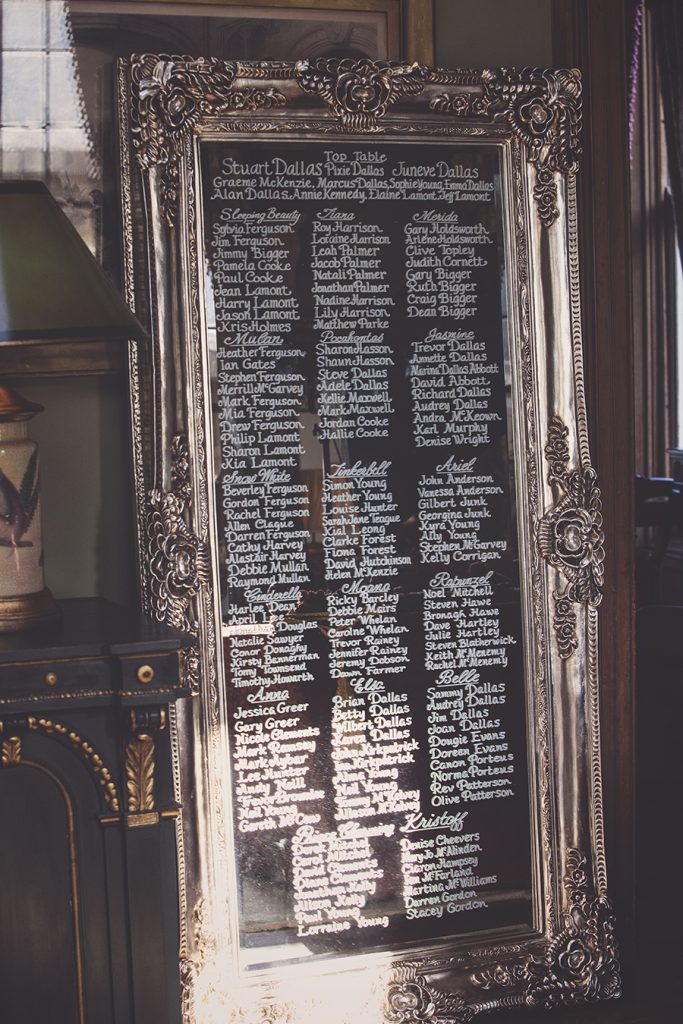 Top Table
Stuart Dallas Pixie Dallas Juneve Dallas
Graeme McKenzie, Marcus Dallas, Sophie Young, Emma Dallas
Alan Dallas, Annie Kennedy, Elaine Lamont, Jeff Lamont
Sleeping Beauty
Sylvia Ferguson
Jim Ferguson
Jimmy Bigger
Pamela Cooke
Paul Cooke
Jean Lamont
Harry Lamont
Jason Lamont
Kris Holmes
Tiana
Roy Harrison
Loraine Harrison
Leah Palmer
Jacob Palmer
Natali Palmer
Jonathan Palmer
Nadine Harrison
Lily Harrison
Matthew Parke
Merida
Gary Holdsworth
Arlene Holdsworth
Clive Topley
Judith Cornett
Gary Bigger
Ruth Bigger
Craig Bigger
Dean Bigger
Mulan
Heather Ferguson
Ian Gates
Stephen Ferguson
Merrill McGarvey
Mark Ferguson
Mia Ferguson
Drew Ferguson
Philip Lamont
Sharon Lamont
Kia Lamont
Pocahontas
Sharon Hasson
Shaun Hasson
Steve Dallas
Adele Dallas
Kellie Maxwell
Mark Maxwell
Jordan Cooke
Hallie Cooke
Jasmine
Trevor Dallas
Annette Dallas
Marina Dallas Abbott
David Abbott
Richard Dallas
Audrey Dallas
Andra McKeown
Karl Murphy
Denise Wright
Snow White
Beverley Ferguson
Gordon Ferguson
Rachel Ferguson
Allen Clague
Darren Ferguson
Cathy Harvey
Alastair Harvey
Debbie Mullan
Raymond Mullan
Tinkerbell
Simon Young
Heather Young
Louise Hunter
Sarah Jane Teague
Kial Leong
Clarke Forest
Fiona Forest
David Hutchinson
Helen McKenzie
Ariel
John Anderson
Vanessa Anderson
Gilbert Junk
Georgina Junk
Kyra Young
Ally Young
Stephen McGarvey
Kelly Corrigan
Cinderella
Harlee Dean
April
Douglas
Natalie Sawyer
Conor Donaghy
Kirsty Bannerman
Tomy Townsend
Timothy Howarth
Moana
Ricky Barcley
Debbie Mairs
Peter Whelan
Caroline Whelan
Trevor Rainey
Jennifer Rainey
Jeremy Dobson
Dawn Farmer
Rapunzel
Noel Mitchell
Steven Hawe
Bronagh Hawe
Dave Hartley
Julie Hartley
Steven Blatherwick
Keith McMenemy
Rachel McMenemy
Anna
Jessica Greer
Gary Greer
Nicole Clements
Mark Ramsey
Mark Aybar
Lee Hunter
Andy Neill
Trevor
Neil
Gareth McCaw
Elsa
Brian Dallas
Betty Dallas
Wilbert Dallas
Karen Dallas
Kirkpatrick
Kirkpatrick
Alma Young
Neil Young
McKelvey
McKelvey
Belle
Sammy Dallas
Audrey Dallas
Jim Dallas
Joan Dallas
Dougie Evans
Doreen Evans
Canon Porteus
Norma Porteus
Rev Patterson
Olive Patterson
Carol Mitchell
David Clements
Kelly
Alison Kelly
Paul Young
Lorraine Young
Kristoff
Denise Cheevers
Mary Jo McAlinden
Ciaron Hampsey
McFarland
Martina McWilliams
Darren Gordon
Stacey Gordon